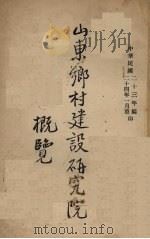 中華民國二十三年編印
二十四年一月重印
山東鄉村建設研究院
概覽